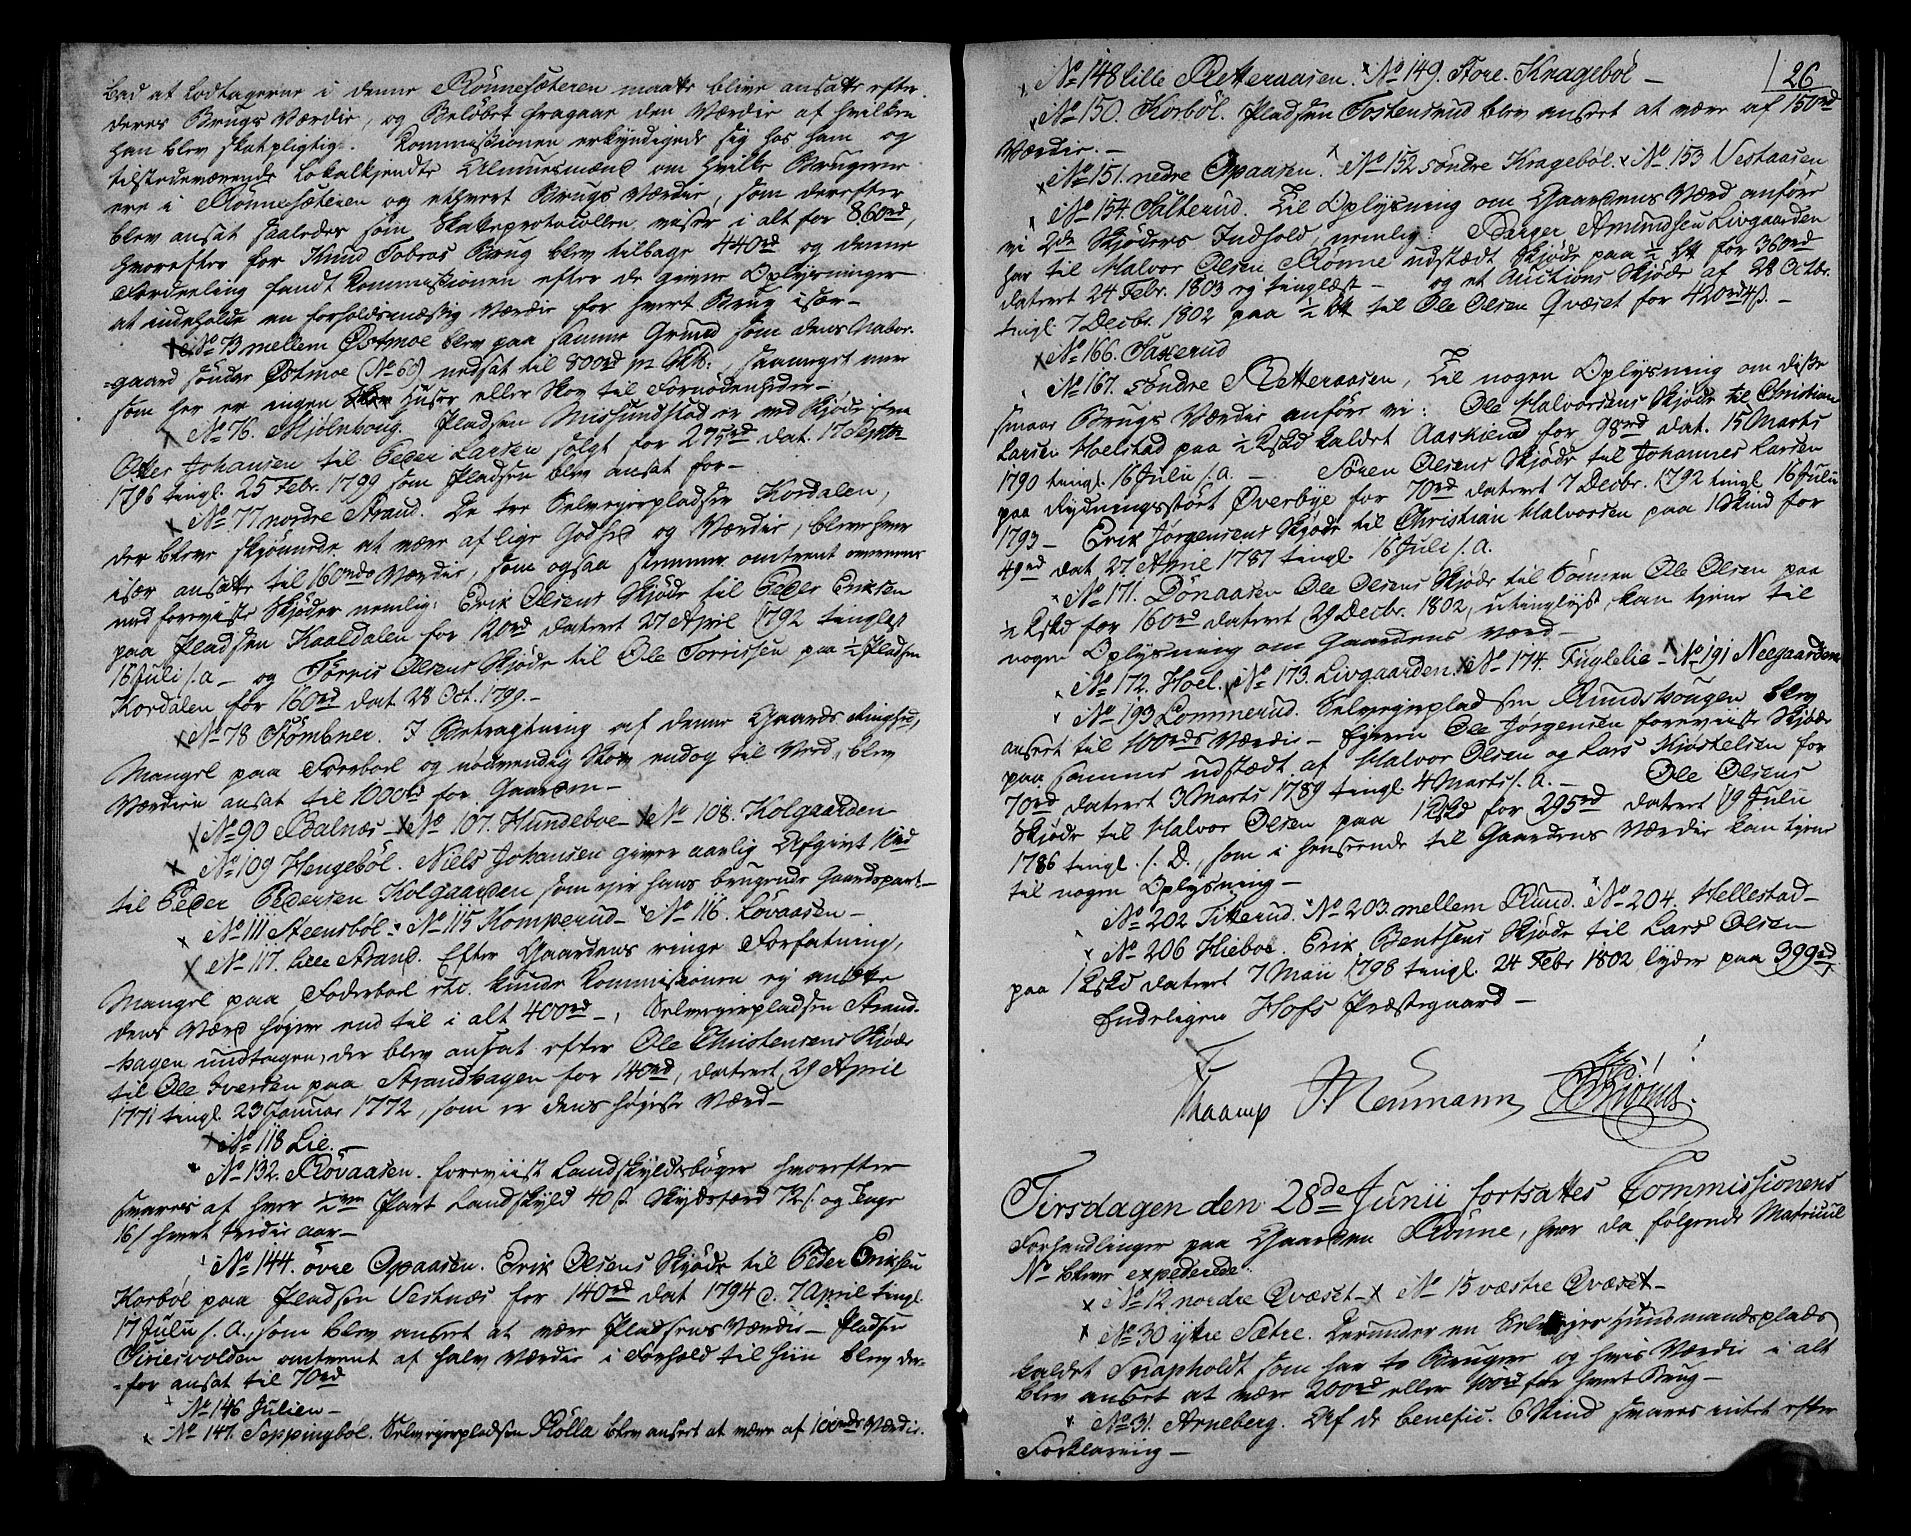 bad at Lodtagerne i denne Rönnesæteren maatte blive ansatte efter
deres Brugs Værdie, og Beløbet fragaae den Værdie af hvilken
han blev skatpligtig. Kommissionen erkyndigede sig hos ham og
tilstedeværende Lokalkjendte Almuesmænd om hvilke Brugerne
ere i Rönnesæteren og ethvert Brugs Værdie, som derefter
blev ansat saaledes som Skatteprotocollen viser i alt for 860rd,
hvorefter for Knud Tobros Brug blev tilbage 440rd og denne
Fordeeling fandt Kommissionen efter de givne Oplysninger
at indeholde en forholdsmæssig Værdie for hvert Brug især-
No 73 mellem Østmoe blev paa samme Grund som dens Nabo-
gaard söndre Østmoe (No 69) nedsat til 800rd pr Sk℔: saameget mere
som her er ingen Huser eller Skov til Fornödenheder-
No 76. Mjølnhoug. Pladsen Missundstad er ved Skjöde fra
Otter Johansen til Peder Larsen solgt for 275rd dat. 17 Septb.
1796 tingl. 25 Febr. 1799 som Pladsen blev ansat for-
No 77 nordre Strand. De tre Selveyerpladser Kordalen,
der bleve skjönnede at være af lige Godhed og Værdie, blev hver
især ansatte til 160rds Værdie, som ogsaa stemmer omtrent overeens
med foreviste Skjöder nemlig: Erik Olsens Skjöde til Peder Eriksen
paa Pladsen Kaaldalen for 120rd dateret 27 April 1792 tinglæst
16 Juli s.a- og Torris Olsens Skjöde til Ole Torrissen paa ½ Pladsen
Kordalen for 160rd dat 28 Oct. 1799.-
No 78 Stömbner. I Betragtning af denne Gaards Ringhed,
Mangel paa Foerboel og nödvendig Skov endog til Ved, blev
Værdien ansat til 1000rd for Gaarden-
No 90 Adalnæs- No 107. Hundeboe- No 108. Kolgaarden-
No 109 Hengeböl. Niels Johansen giver aarlig Afgivt 1 rd
til Peder Pedersen Kolgaarden som eier hans brugende Gaardspart-
No 111 Steensböl- No 115 Komperud- No 116. Lövaasen-
No 117. lille Strand. Efter Gaardens ringe Forfatning,
Mangel paa Foderboel etc. kunde Kommissionen ej ansætte
dens Værd höjere end til i alt 400rd-, Selveyerpladsen Strand-
hagen undtagen, der blev ansat efter Ole Christensens Skjöde
til Ole Iversen paa Strandhagen for 140rd, dateret 29 April
1771 tingl. 23 Januar 1772, som er dens höjeste Værd-
No 118 Lie.-
No 132. Rövaasen. foreviist Landskyldsbøger hvorefter
svares af hver ½ven Part Landskyld 40 s. Skydsfærd 72 s. og Foge
16 s hvert tredie aar-
No 144. övre Opaasen. Erik Olsens Skjöde til Peder Eriksen
Korböl paa Pladsen Vestnæs for 140rd dat 1794 d. 7 April tingl.
17 Julii s.A., som blev anseet at være Pladsens Værdie- Pladsen
Siriesvolden omtrent af halv Værdie i Forhold til hiin blev der-
-for ansat til 70rd
No 146 Julien-
No 147. Seppingböl. Selveyerpladsen Rölla blev anseet at være af 100rds Værdie.
26
No 148 lille Retteraasen. No 149. Store. Kragebøl-
No 150. Korböl. Pladsen Tostensrud blev anseet at være af 150rd
Værdie.-
No 151. nedre Opaasen. No 152 söndre Krageböl. No 153 Vestaasen
No 154. Salterud. Til Oplysning om Gaardens Værd anföre
vi 2de Skjöders Indhold, nemlig Barger Amundsen Livgaarden
har til Halvor Olsen Rönne udstædt Skjöde paa ½ ℔ for 360rd
dateret 24 Febr. 1803 og tinglæst- og et Auctions Skjöde af 28 Octbr.
tingl. 7 Decbr. 1802 paa ½ ℔ til Ole Olsen Qvæset for 420rd 4ß.-
No 166. Saxerud
No 167. söndre Retteraasen, Til nogen Oplysning om disse
smaae Brugs Værdie anföre vi: Ole Halvorsens Skjöde til Christian
Larsen Hoelstad paa ½ Skd kaldet Aaskiend for 98rd dat. 15 Marts
1790 tingl. 16 Julii s.a.- Sören Olsens Skjöde til Johannes Larsen
paa Rydningsstört Øverbye for 70rd dateret 7 Decbr. 1792 tingl 16 Julii
1793- Erik Jørgensens Skjöde til Christian Halvorsen paa 1 Skind for
49rd dat 27 April 1787 tingl. 16 Juli s.a.
No 171. Dönaasen Ole Olsens Skjöde til Sönnen Ole Olsen paa
½ Skd for 160rd dateret 29 Decbr. 1802, utinglyst, kan tjene til
nogen Oplysning om Gaardens Værd-
No 172. Hoel. No 173. Livgaarden. No 174 Fuglelie- No 191 Neegaarden
No 193 Lommerud. Selveyerpladsen Rundshougen blev
anseet til 100rds Værdie- Ejeren Ole Jørgensen foreviste Skjöde
paa samme udstædt af Halvor Olsen og Lars Kjöstelsen for
70rd dateret 3 Marts 1789 tingl. 4 Marts s.A.- Ole Olsens
Skjöde til Halvor Olsen paa 1 Skd for 295rd dateret 19 Julii
1786 tingl. s.D., som i henseende til Gaardens Værdie kan tjene
til nogen Oplysning-
No 202 Titterud. No 203. mellem Rund. No 204. Hellestad-
No 206 Hieboe. Erik Bentsens Skjöde til Lars Olsen
paa 1 Skd dateret 7 Maii 1798 tingl. 24 Febr 1802 lyder paa 399rd
Endeligen Hofs Præstegaard-
Thaarup J. Neumann
Tirsdagen den 28de Junii fortsattes Commissionens
Forhandlinger paa Gaarden Rönne, hvor da følgende Matricul
No bleve expederede.
No 12 nordre Qvæset- No 15 væstre Qvæset-
No 30 ytre Sætre. Derunder en Selveyer Huusmandsplads
kaldet Snapholdt som har to Brugere og hvis Værdie i alt
blev anseet at være 200rd eller 100rd for hvert Brug-
No 31. Arneberg. Af de benefic. 6 Skind svares intet efter
Forklaring-